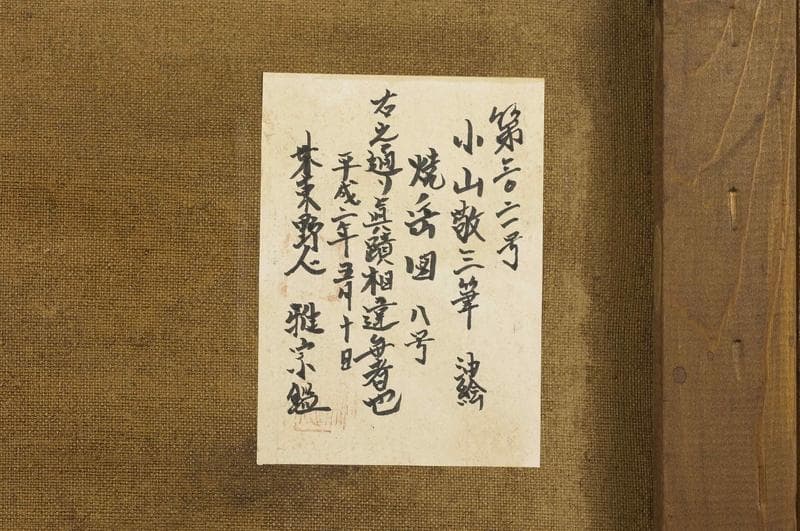 第三〇二一号
小山敬三筆 油絵
焼ヶ岳図 八号
右之通り眞蹟相違無者也
平成二年五月十日
東野人 雅宗鑑